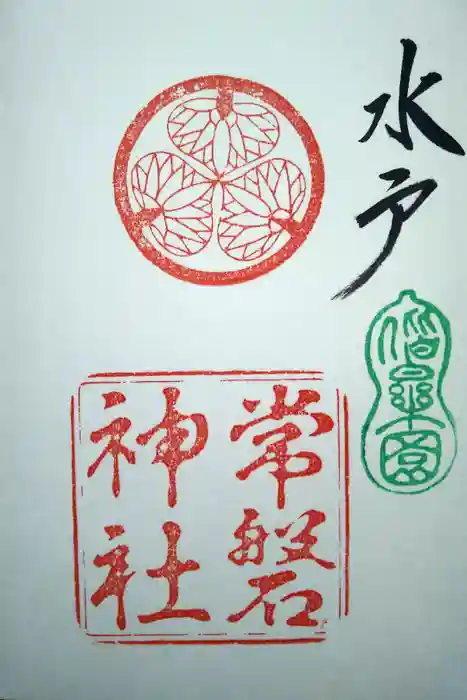 水戸
偕楽園
常磐
神社